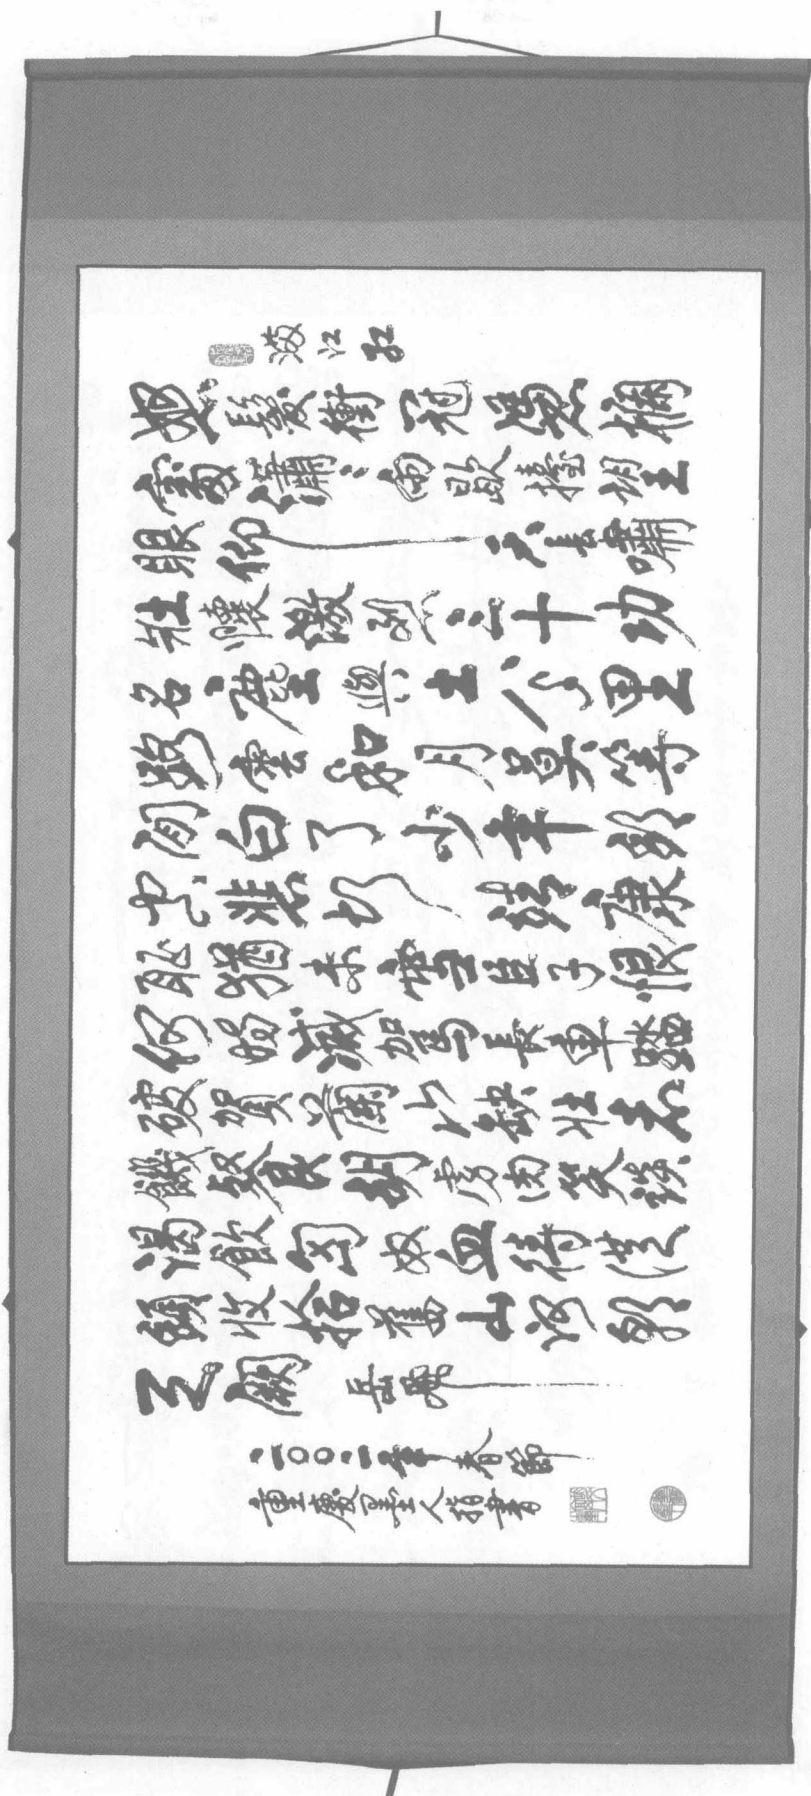 滿江紅
怒髮衝冠憑欄
處瀟瀟雨歇擡望
眼仰天長嘯
壯懷激烈三十功
名塵與土八千里
路雲和月莫等
閒白了少年頭
空悲切靖康
恥猶未雪臣子恨
何時滅駕長車踏
破賀蘭山缺壯志
饑餐胡虜肉笑談
渴飲匈奴血待從
頭收拾舊山河朝
天闕 岳飛
二〇〇一年春節
重慶人指書